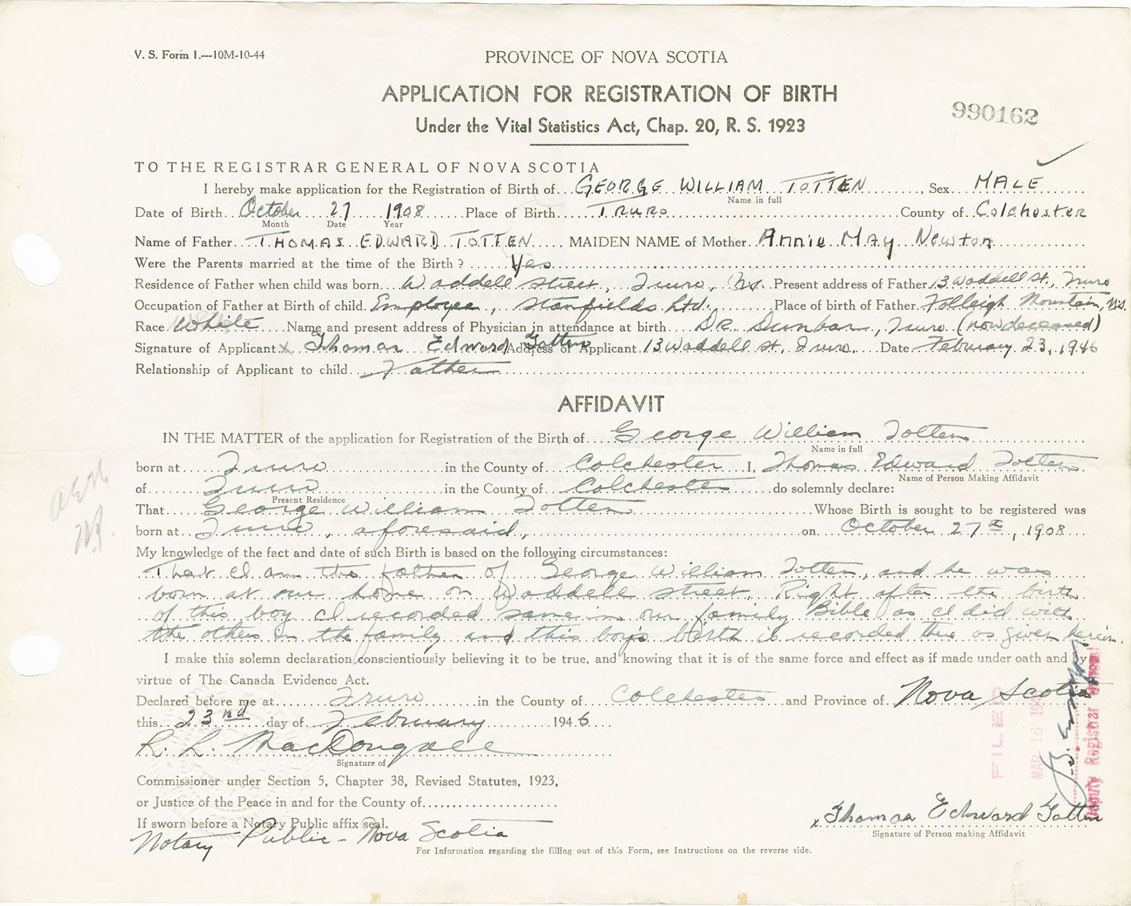 V. S. Form 1.—10M-10-44
PROVINCE OF NOVA SCOTIA
APPLICATION FOR REGISTRATION OF BIRTH
Under the Vital Statistics Act, Chap. 20, R. S. 1923
990162
TO THE REGISTRAR GENERAL OF NOVA SCOTIA
I hereby make application for the Registration of Birth of GEORGE WILLIAM TOTTEN, Sex MALE
Name in full
Date of Birth October 27 1908 Place of Birth TRURO County of Colchester
Month Date Year
Name of Father THOMAS EDWARD TOTTEN MAIDEN NAME of Mother Annie May Newton
Were the Parents married at the time of the Birth? Yes
Residence of Father when child was born Waddell Street, Truro, N.S. Present address of Father 13 Waddell St, Truro
Occupation of Father at Birth of child Employee, Stanfields Ltd. Place of birth of Father Folleigh Mountain, N.S.
Race White Name and present address of Physician in attendance at birth DR. Dunbar, Truro (now deceased)
Signature of Applicant x Thomas Edward Totten Address of Applicant 13 Waddell St, Truro Date February 23, 1946
Relationship of Applicant to child Father
AFFIDAVIT
IN THE MATTER of the application for Registration of the Birth of George William Totten
Name in full
born at Truro in the County of Colchester I, Thomas Edward Totten
Name of Person Making Affidavit
of Truro in the County of Colchester do solemnly declare:
Present Residence
That George William Totten Whose Birth is sought to be registered was
born at Truro, aforesaid, on October 27th, 1908
My knowledge of the fact and date of such Birth is based on the following circumstances:
That I am the father of George William Totten, and he was
born at our home on Waddell Street. Right after the birth
of this boy I recorded same in our family Bible as I did with
the others in the family and this boys birth is recorded there as given herein.
I make this solemn declaration conscientiously believing it to be true, and knowing that it is of the same force and effect as if made under oath and by
virtue of The Canada Evidence Act.
Declared before me at Truro in the County of Colchester and Province of Nova Scotia
this 23rd day of February 1946
R. L. MacDougall
Signature of
Commissioner under Section 5, Chapter 38, Revised Statutes, 1923,
or Justice of the Peace in and for the County of
If sworn before a Notary Public affix seal.
Notary Public - Nova Scotia
x Thomas Edward Totten
Signature of Person making Affidavit
For Information regarding the filling out of this Form, see Instructions on the reverse side.
FILED
Deputy Registrar General